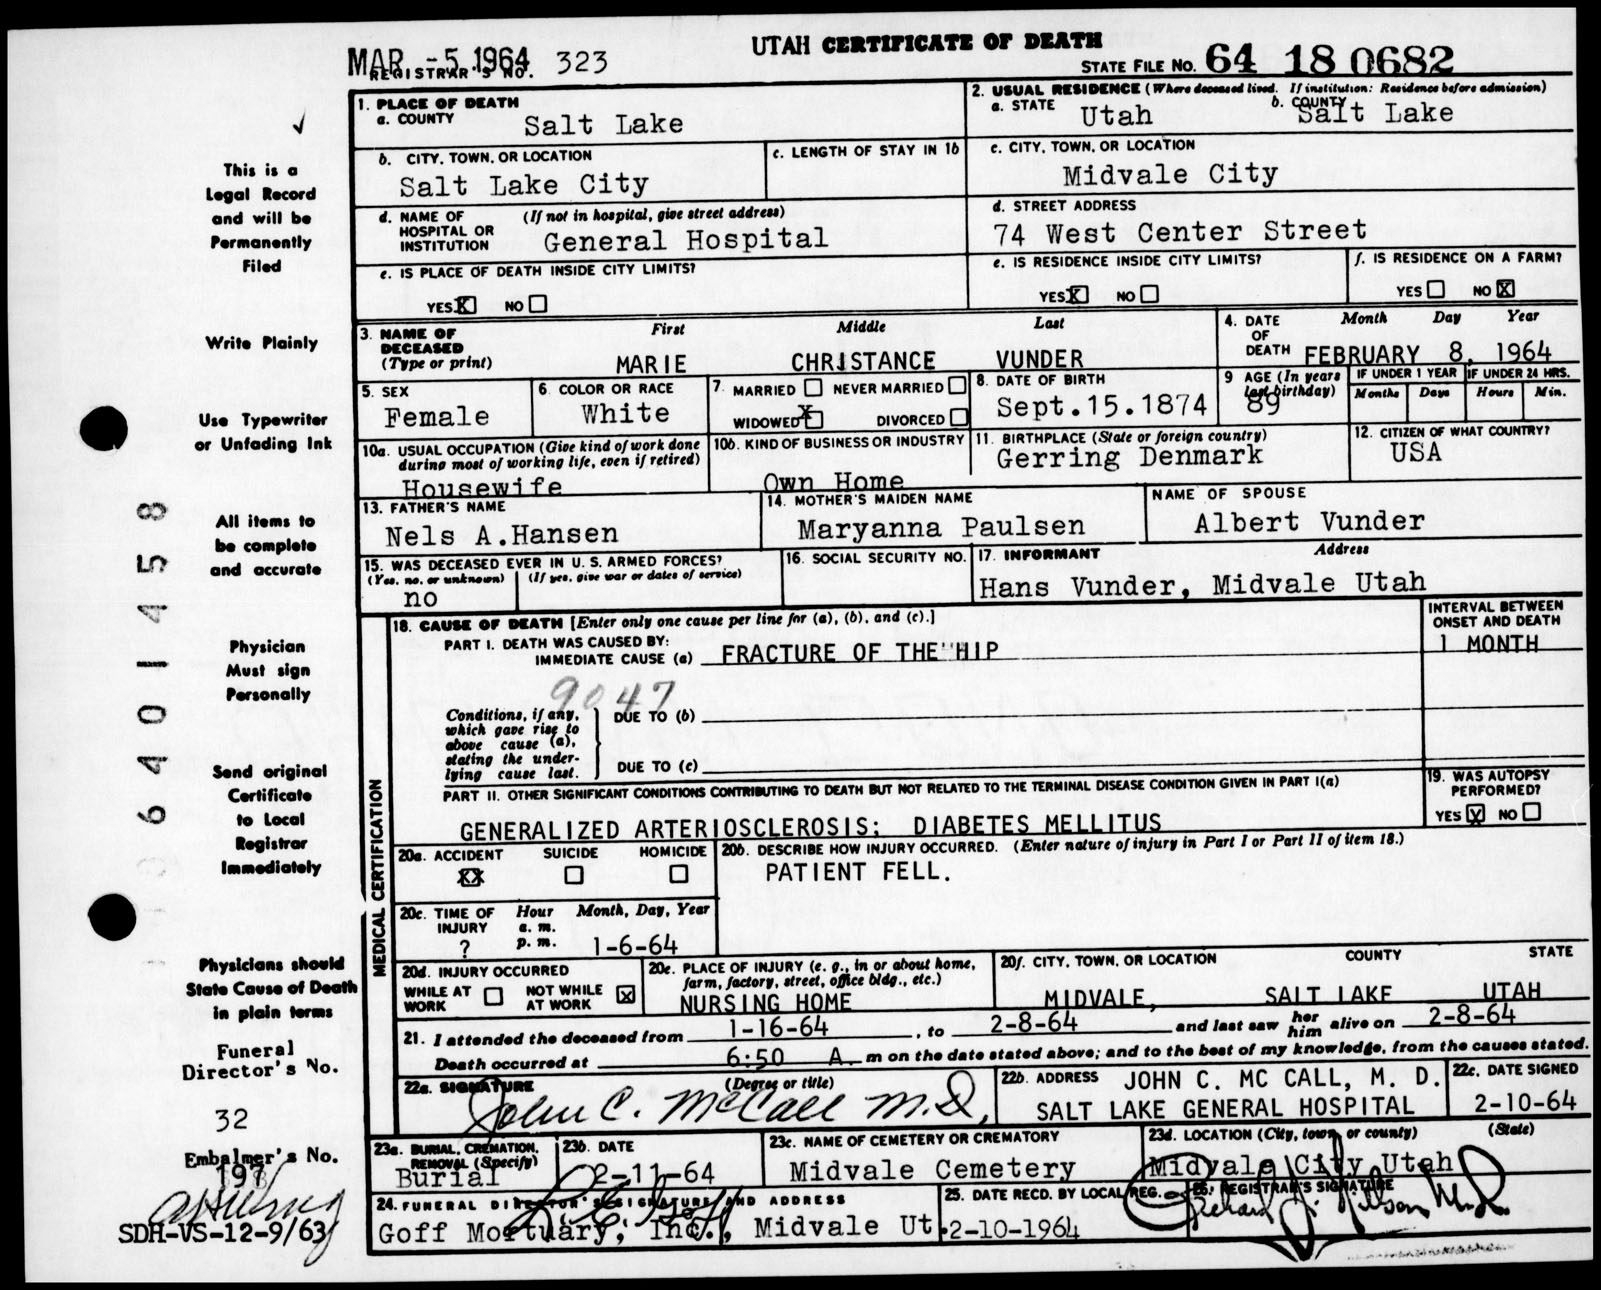 UTAH CERTIFICATE OF DEATH
MAR -5 1964
REGISTRAR'S NO. 323
STATE FILE NO. 64 18 0682
1. PLACE OF DEATH
a. COUNTY
Salt Lake
2. USUAL RESIDENCE (Where deceased lived. If institution: Residence before admission)
a. STATE Utah b. COUNTY Salt Lake
b. CITY, TOWN, OR LOCATION
Salt Lake City
c. LENGTH OF STAY IN 1b
c. CITY, TOWN, OR LOCATION
Midvale City
d. NAME OF HOSPITAL OR INSTITUTION (If not in hospital, give street address)
General Hospital
d. STREET ADDRESS
74 West Center Street
e. IS PLACE OF DEATH INSIDE CITY LIMITS?
YES X NO
e. IS RESIDENCE INSIDE CITY LIMITS?
YES X NO
f. IS RESIDENCE ON A FARM?
YES NO X
3. NAME OF DECEASED (Type or print)
First Middle Last
MARIE CHRISTANCE VUNDER
4. DATE OF DEATH Month Day Year
FEBRUARY 8, 1964
5. SEX
Female
6. COLOR OR RACE
White
7. MARRIED NEVER MARRIED
WIDOWED X DIVORCED
8. DATE OF BIRTH
Sept.15.1874
9 AGE (In years last birthday)
89
IF UNDER 1 YEAR IF UNDER 24 HRS.
Months Days Hours Min.
10a. USUAL OCCUPATION (Give kind of work done during most of working life, even if retired)
Housewife
10b. KIND OF BUSINESS OR INDUSTRY
Own Home
11. BIRTHPLACE (State or foreign country)
Gerring Denmark
12. CITIZEN OF WHAT COUNTRY?
USA
13. FATHER'S NAME
Nels A.Hansen
14. MOTHER'S MAIDEN NAME
Maryanna Paulsen
NAME OF SPOUSE
Albert Vunder
15. WAS DECEASED EVER IN U. S. ARMED FORCES?
(Yes, no, or unknown) (If yes, give war or dates of service)
no
16. SOCIAL SECURITY NO.
17. INFORMANT Address
Hans Vunder, Midvale Utah
MEDICAL CERTIFICATION
18. CAUSE OF DEATH [Enter only one cause per line for (a), (b), and (c).]
INTERVAL BETWEEN ONSET AND DEATH
PART I. DEATH WAS CAUSED BY:
IMMEDIATE CAUSE (a) FRACTURE OF THE HIP
1 MONTH
9047
Conditions, if any, which gave rise to above cause (a), stating the underlying cause last.
DUE TO (b)
DUE TO (c)
PART II. OTHER SIGNIFICANT CONDITIONS CONTRIBUTING TO DEATH BUT NOT RELATED TO THE TERMINAL DISEASE CONDITION GIVEN IN PART I(a)
GENERALIZED ARTERIOSCLEROSIS; DIABETES MELLITUS
19. WAS AUTOPSY PERFORMED?
YES X NO
20a. ACCIDENT SUICIDE HOMICIDE
XX
20b. DESCRIBE HOW INJURY OCCURRED. (Enter nature of injury in Part I or Part II of item 18.)
PATIENT FELL.
20c. TIME OF INJURY Hour a. m. p. m. Month, Day, Year
? 1-6-64
20d. INJURY OCCURRED
WHILE AT WORK NOT WHILE AT WORK X
20e. PLACE OF INJURY (e. g., in or about home, farm, factory, street, office bldg., etc.)
NURSING HOME
20f. CITY, TOWN, OR LOCATION COUNTY STATE
MIDVALE, SALT LAKE UTAH
21. I attended the deceased from 1-16-64, to 2-8-64 and last saw her him alive on 2-8-64
Death occurred at 6:50 A. m on the date stated above; and to the best of my knowledge, from the causes stated.
22a. SIGNATURE (Degree or title)
John C. McCall M.D.
22b. ADDRESS JOHN C. MC CALL, M. D.
SALT LAKE GENERAL HOSPITAL
22c. DATE SIGNED
2-10-64
23a. BURIAL, CREMATION, REMOVAL (Specify)
Burial
23b. DATE
2-11-64
23c. NAME OF CEMETERY OR CREMATORY
Midvale Cemetery
23d. LOCATION (City, town, or county) (State)
Midvale City Utah
24. FUNERAL DIRECTOR'S SIGNATURE AND ADDRESS
Goff Mortuary, Inc., Midvale Ut.
25. DATE RECD. BY LOCAL REG.
2-10-1964
26. REGISTRAR'S SIGNATURE
This is a
Legal Record
and will be
Permanently
Filed
Write Plainly
Use Typewriter
or Unfading Ink
All items to
be complete
and accurate
Physician
Must sign
Personally
Send original
Certificate
to Local
Registrar
Immediately
Physicians should
State Cause of Death
in plain terms
Funeral
Director's No.
32
Embalmer's No.
SDH-VS-12-9/63
6401458